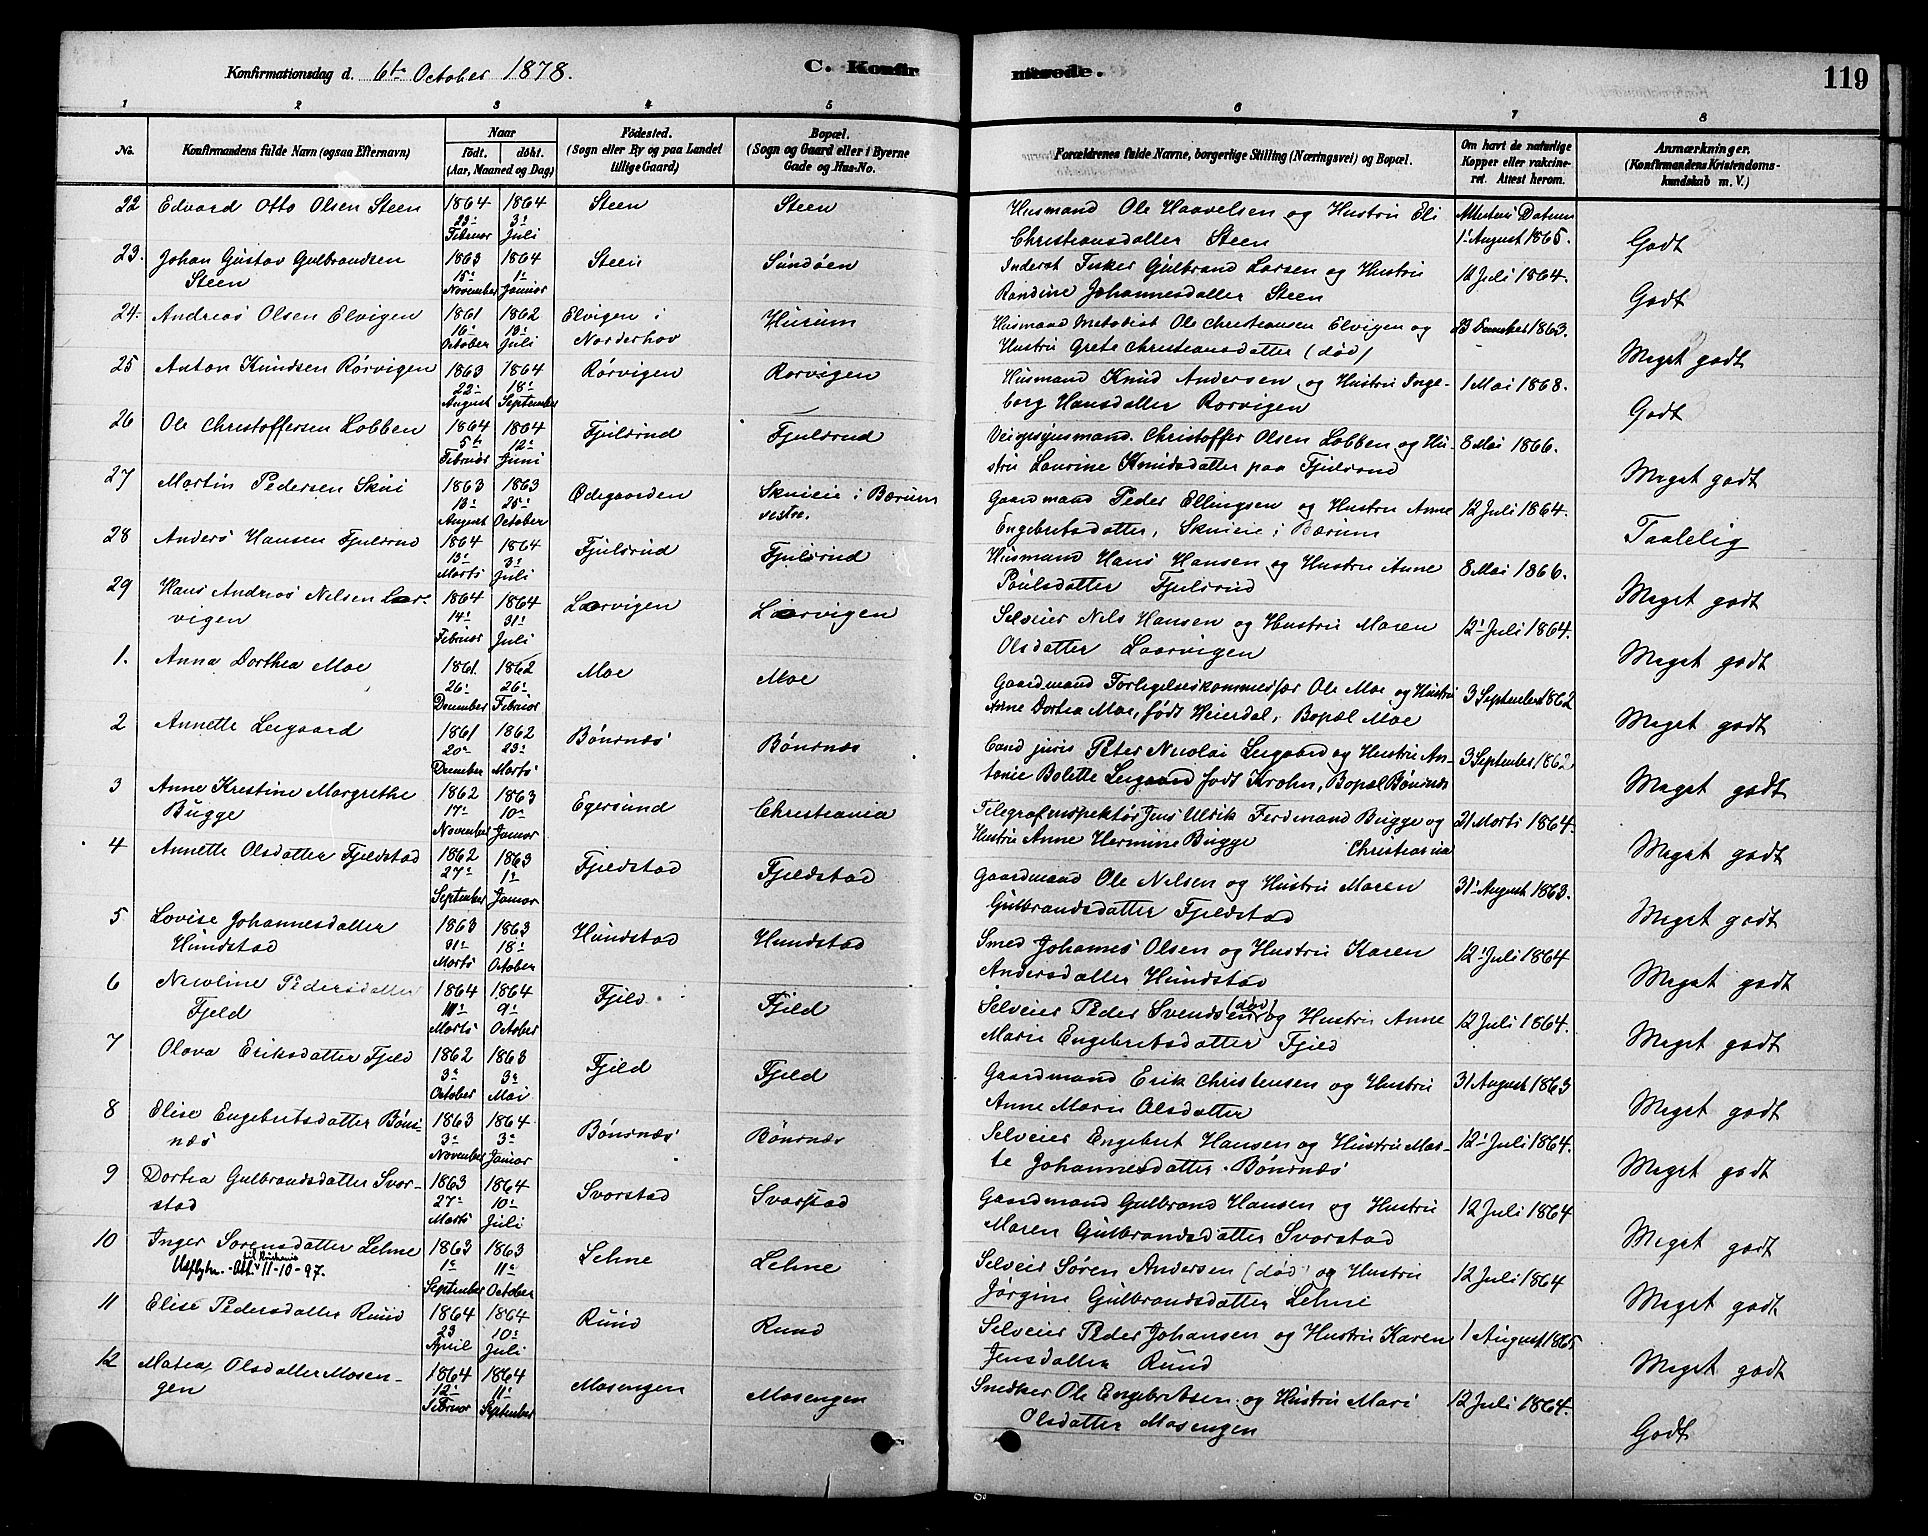 Konfirmationsdag d. 6te October 1878.
C. Konfirmerede.
119
1 2 3 4 5 6 7 8
No.
Konfirmandens fulde Navn (ogsaa Efternavn)
Naar
født. døbt.
(Aar, Maaned og Dag)
Fødested.
(Sogn eller By og paa Landet
tillige Gaard)
Bopæl.
(Sogn og Gaard eller i Byerne
Gade og Hus-No.
Forældrenes fulde Navne, borgerlige Stilling (Næringsvei) og Bopæl.
Om havt de naturlige
Kopper eller vakcine-
ret. Attest herom.
Anmærkninger.
(Konfirmandens Kristendoms-
kundskab m. V.)
22 Edvard Otto Olsen Steen 1864 22 Februar 1864 3 Juli Steen Steen Husmand Ole Haavelsen og Hustru Eli
Christiansdatter Steen Attestens Datum 1 August 1865. Godt
23. Johan Gustav Gulbrandsen
Steen 1863 15 November 1864 1 Januar Steen Sundøen Inderst Fisker Gulbrand Larsen og Hustru
Randine Johannesdatter Steen 12 Juli 1864. Godt
24. Andreas Olsen Elvigen 1861 16 October 1862 13 Juli Elvigen i
Norderhov Hurum Husmand Metodist Ole Christiansen Elvigen og
Hustru Grete Christiansdatter (død) 23 December 1863. Meget godt
25 Anton Knudsen Rørvigen 1863 22 August 1864 18 September Rørvigen Rørvigen Husmand Knud Andersen og Hustru Inge-
borg Hansdatter Rørvigen 1 Mai 1868. Godt
26 Ole Christoffersen Lobben 1864 5te Februar 1864 12 Juni Fjulsrud Fjulsrud Christoffer Olsen Lobben og Hu-
stru Laurine Knudsdatter paa Fjulsrud 8 Mai 1866. Meget godt
27 Martin Pedersen Skui 1863 13 August 1863 25 October Ødegaarden Skuieie i Bærum
vestre. Gaardmand Peder Ellingsen og Hustru Anne
Engebretsdatter, Skuieie i Bærum 12 Juli 1864. Taalelig
28 Anders Hansen Fjulsrud 1864 13 Marts 1864 3 Juli Fjulsrud Fjulsrud Husmand Hans Hansen og Hustru Anne
Poulsdatter Fjulsrud 8 Mai 1866. Meget godt
29 Hans Andreas Nilsen Laar-
vigen 1864 14 Februar 1864 31 Juli Laarvigen Laarvigen Selveier Nils Hansen og Hustru Maren
Olsdatter Laarvigen 12 Juli 1864. Meget godt
1. Anna Dorthea Moe 1861. 26 December 1862 26 Februar Moe Moe Gaardmand Forligelseskommissær Ole Moe og Hustru
Anne Dortea Moe, født Heierdal, Bopæl Moe 3 September 1862 Meget godt
2 Annette Leegaard 1861 20 December 1862 23 Marts Bønsnæs Bønsnæs Cand juris Peter Nicolai Leegaard og Hustru An-
tonie Bolette Leegaard født Krohn, Bopæl Bønsnæs 3 September 1862 Meget godt
3 Anne Kristine Margrethe
Bugge 1862 17 November 1863 10 Januar Egersund Christiania Telegrafinspektør Jens Ulrik Ferdinand Bugge og
Hustru Anne Hermine Bugge Christiania 21 Marts 1864. Meget godt
4 Annette Olsdatter Fjeldstad 1862 27 September 1863 1 Januar Fjeldstad Fjeldstad Gaardmand Ole Nilsen og Hustru Maren
Gulbrandsdatter Fjeldstad 31 August 1863. Meget godt
5 Lovise Johannesdatter
Hundstad 1863 31 Marts 1863 18 October Hundstad Hundstad Smed Johannes Olsen og Hustru Karen
Andersdatter Hundstad 12 Juli 1864 Meget godt
6 Nicoline Pedersdatter
Fjeld 1864 Marts 1864 9 October Fjeld Fjeld Selveier Peder Svendsen (død) og Hustru Anne
Marie Engebretsdatter Fjeld 12 Juli 1864. Meget godt
7 Olava Eriksdatter Fjeld 1862 3 October 1863 3 Mai Fjeld Fjeld Gaardmand Erik Christensen og Hustru
Anne Marie Olsdatter 31 August 1863 Meget godt
8 Elise Engebretsdatter Bøns-
næs 1863 3 November 1864 3 Januar Bønsnæs Bønsnæs Selveier Engebret Hansen og Hustru Mar-
te Johannesdatter Bønsnæs 12 Juli 1864. Meget godt
9 Dortea Gulbrandsdatter Svar-
stad 1863 27 Marts 1864 10 Juli Svarstad Svarstad Gaardmand Gulbrand Hansen og Hustru
Maren Gulbrandsdatter Svarstad 12 Juli 1864 Meget godt
10 Inger Sørensdatter Lehne
Udflytn. Att. 11-10-97. 1863 1 September 1863 11 October Lehne Lehne Selveier Søren Andersen (død) og Hustru
Jørgine Gulbrandsdatter Lehne 12 Juli 1864 Meget godt
11 Elise Pedersdatter Ruud 1864 23 April 1864 10 Juli Ruud Ruud Selveier Peder Johansen og Hustru Karen
Jensdatter Ruud 1 August 1865 Meget godt
12 Matea Olsdatter Mosen-
gen 1864 12 Februar 1864 11 September Mosengen Mosengen Snedker Ole Engebretsen og Hustru Mari
Olsdatter Mosengen 12 Juli 1864. Godt